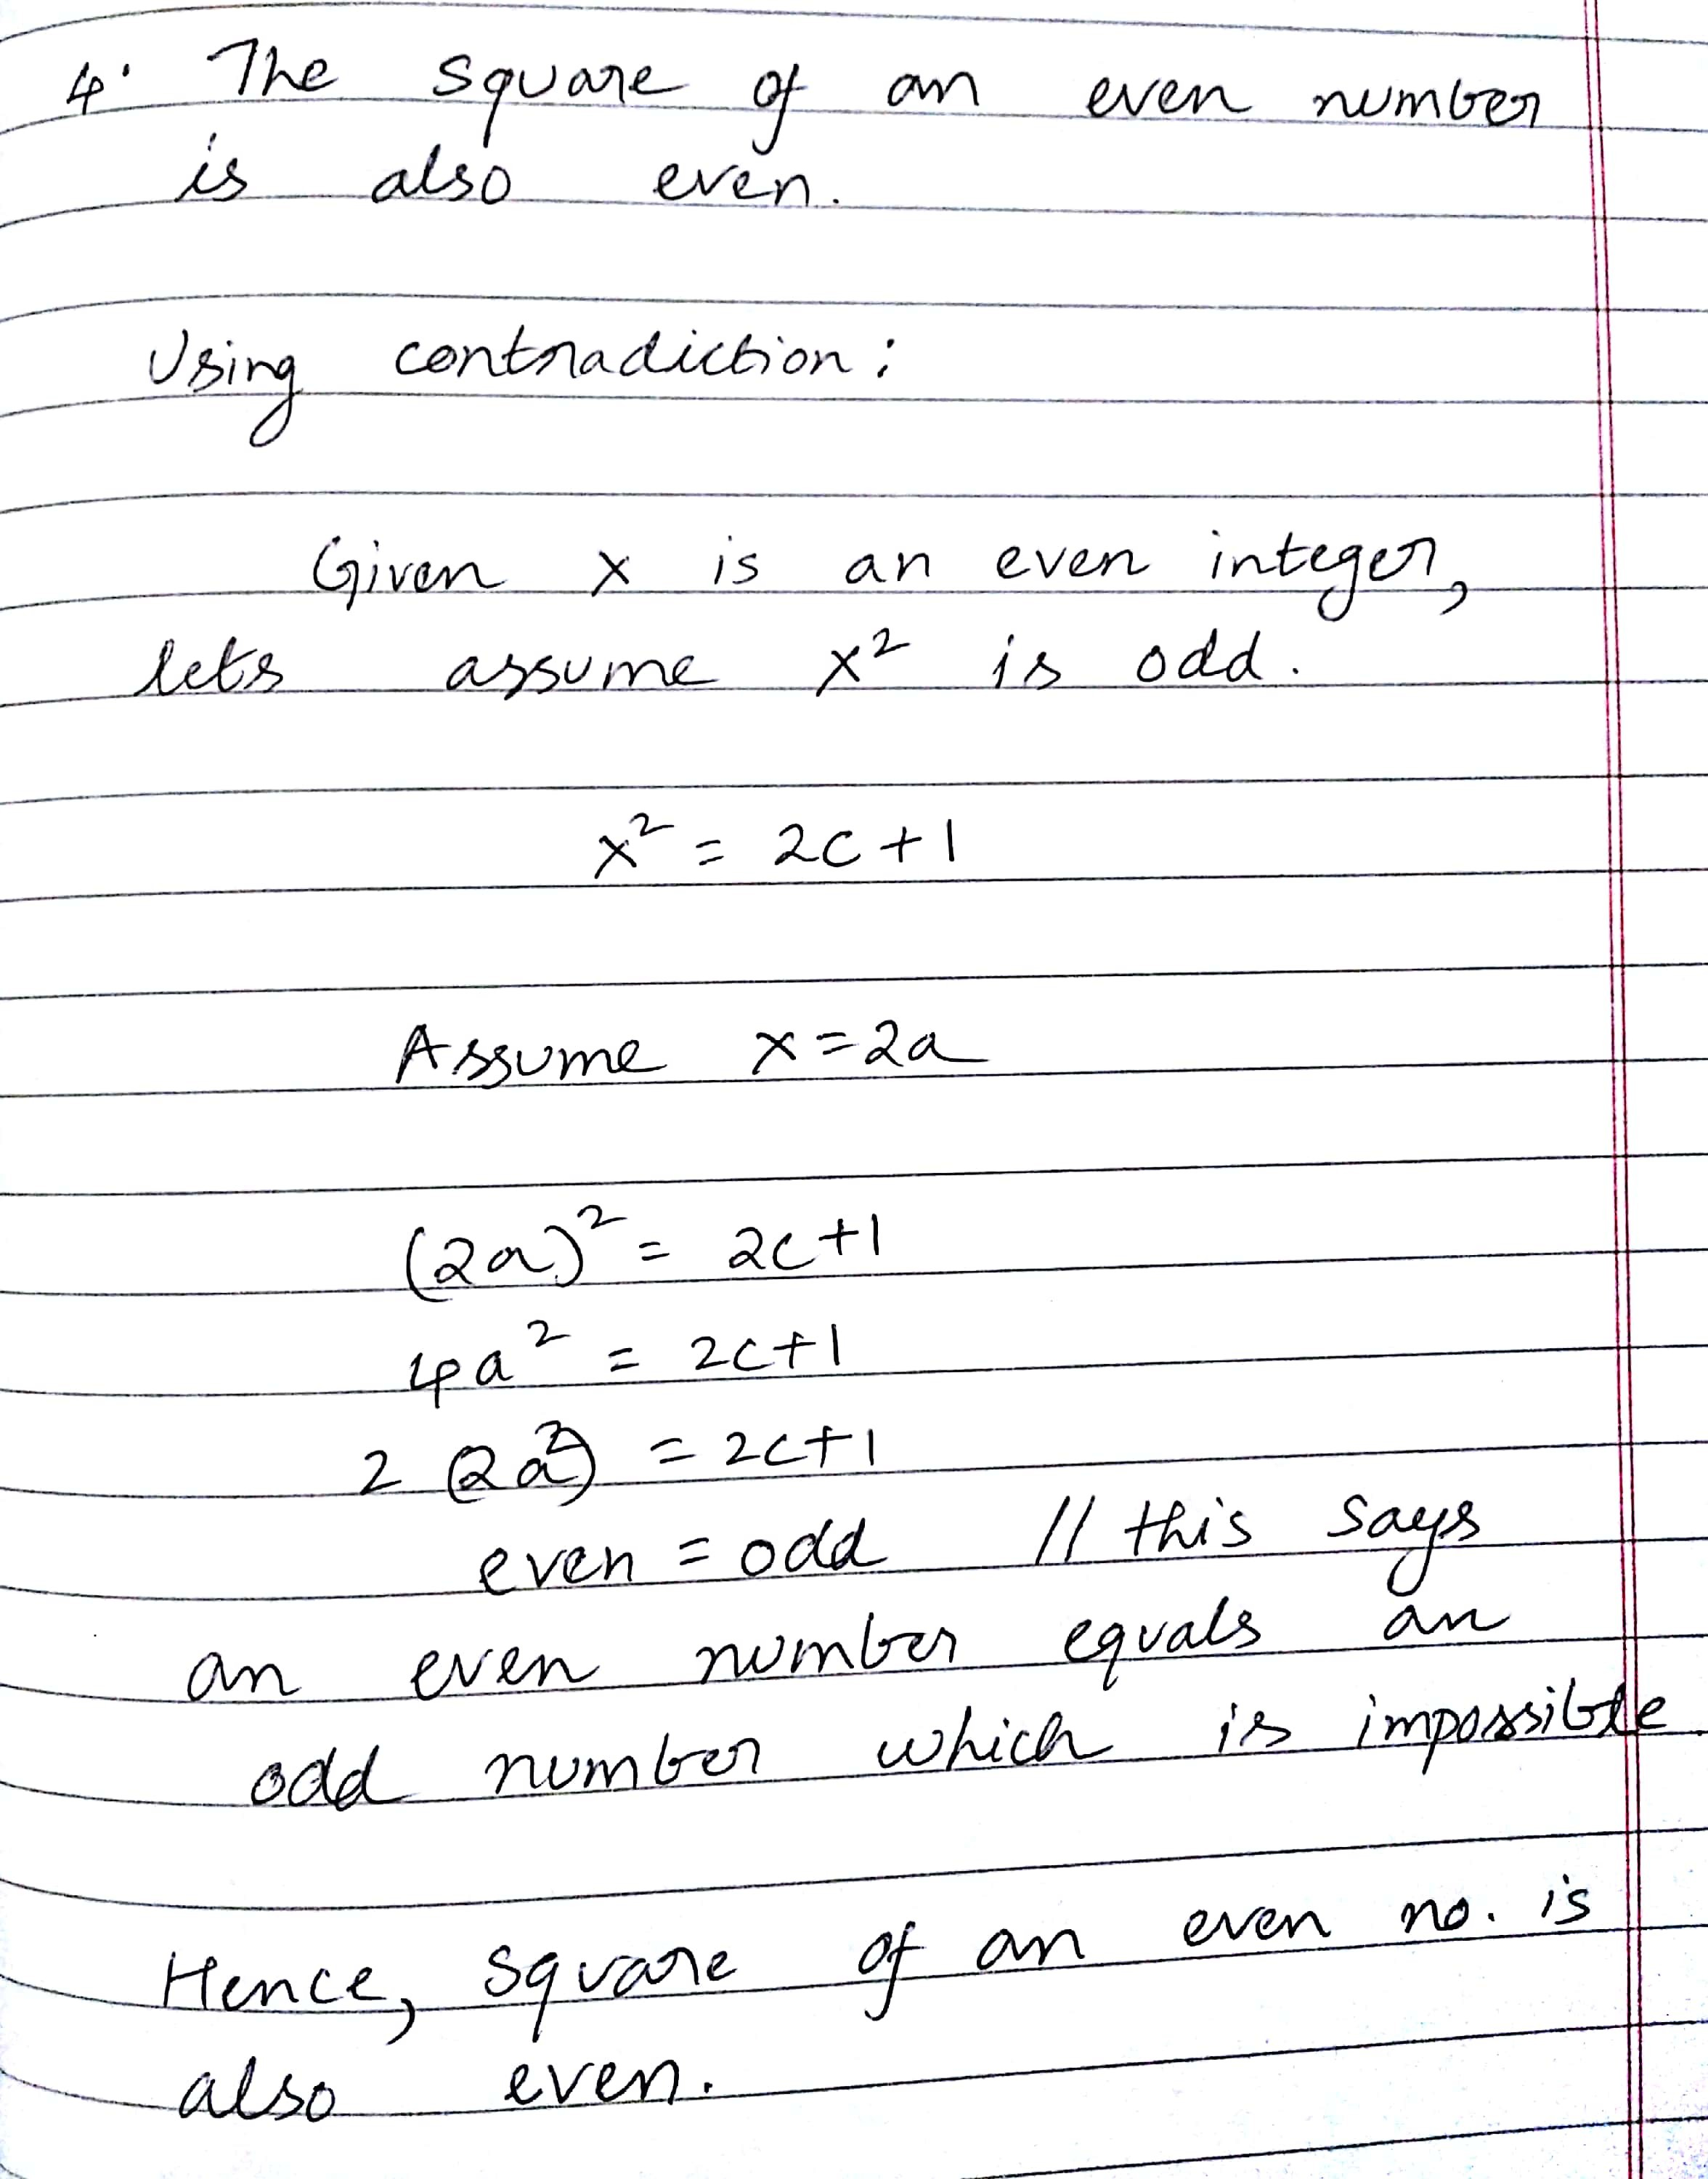 4. The square of an even number
is also even.
Using contradiction:
Given x is an even integer,
lets assume x² is odd.
x² = 2c+1
Assume x=2a
(2a)² = 2c+1
4a² = 2c+1
2 (2a²) = 2c+1
even = odd // this says
an even number equals an
odd number which is impossible
Hence, square of an even no. is
also even.